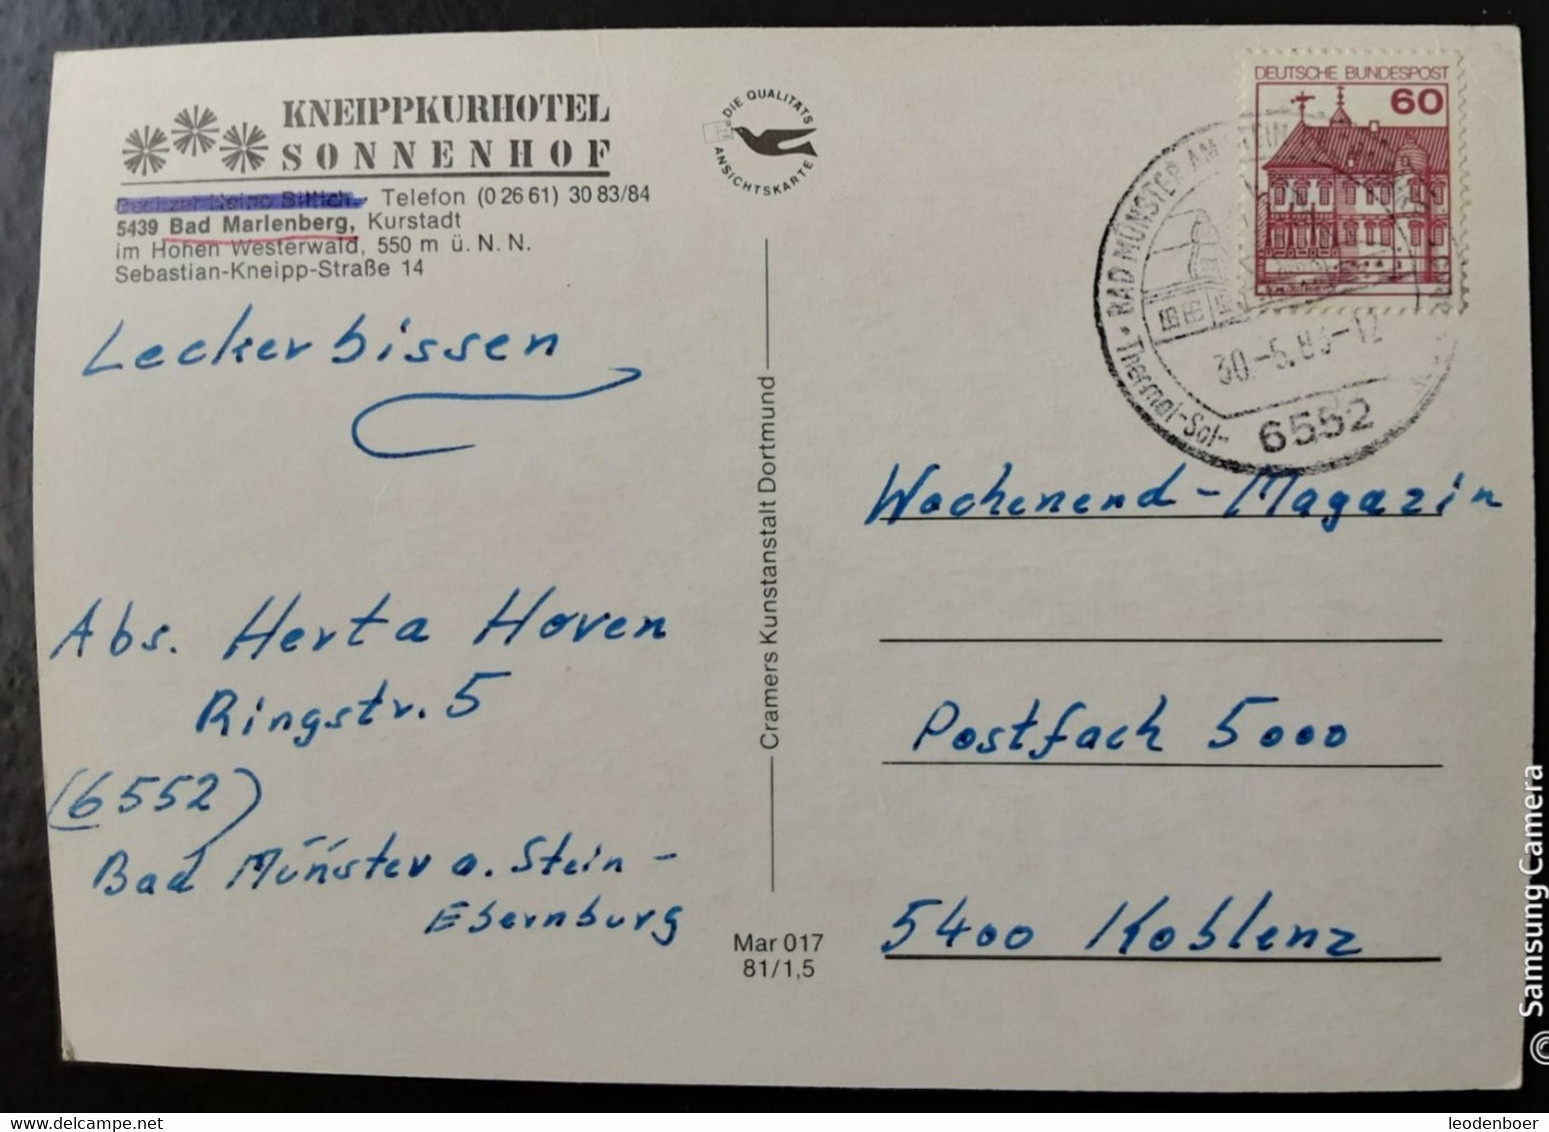 KNEIPPKURHOTEL
SONNENHOF
Telefon (0 26 61) 30 83/84
5439 Bad Marienberg, Kurstadt
im Hohen Westerwald, 550 m ü. N. N.
Sebastian-Kneipp-Straße 14
Leckerbissen
Abs. Herta Hoven
Ringstr. 5
(6552)
Bad Münster a. Stein -
Ebernburg
DIE QUALITÄTS
ANSICHTSKARTE
Cramers Kunstanstalt Dortmund
Mar 017
81/1,5
DEUTSCHE BUNDESPOST
60
BAD MÜNSTER AM STEIN
30.-5.83-12
Thermal-Sol-
6552
Wochenend-Magazin
Postfach 5000
5400 Koblenz
© Samsung Camera
leodenboer